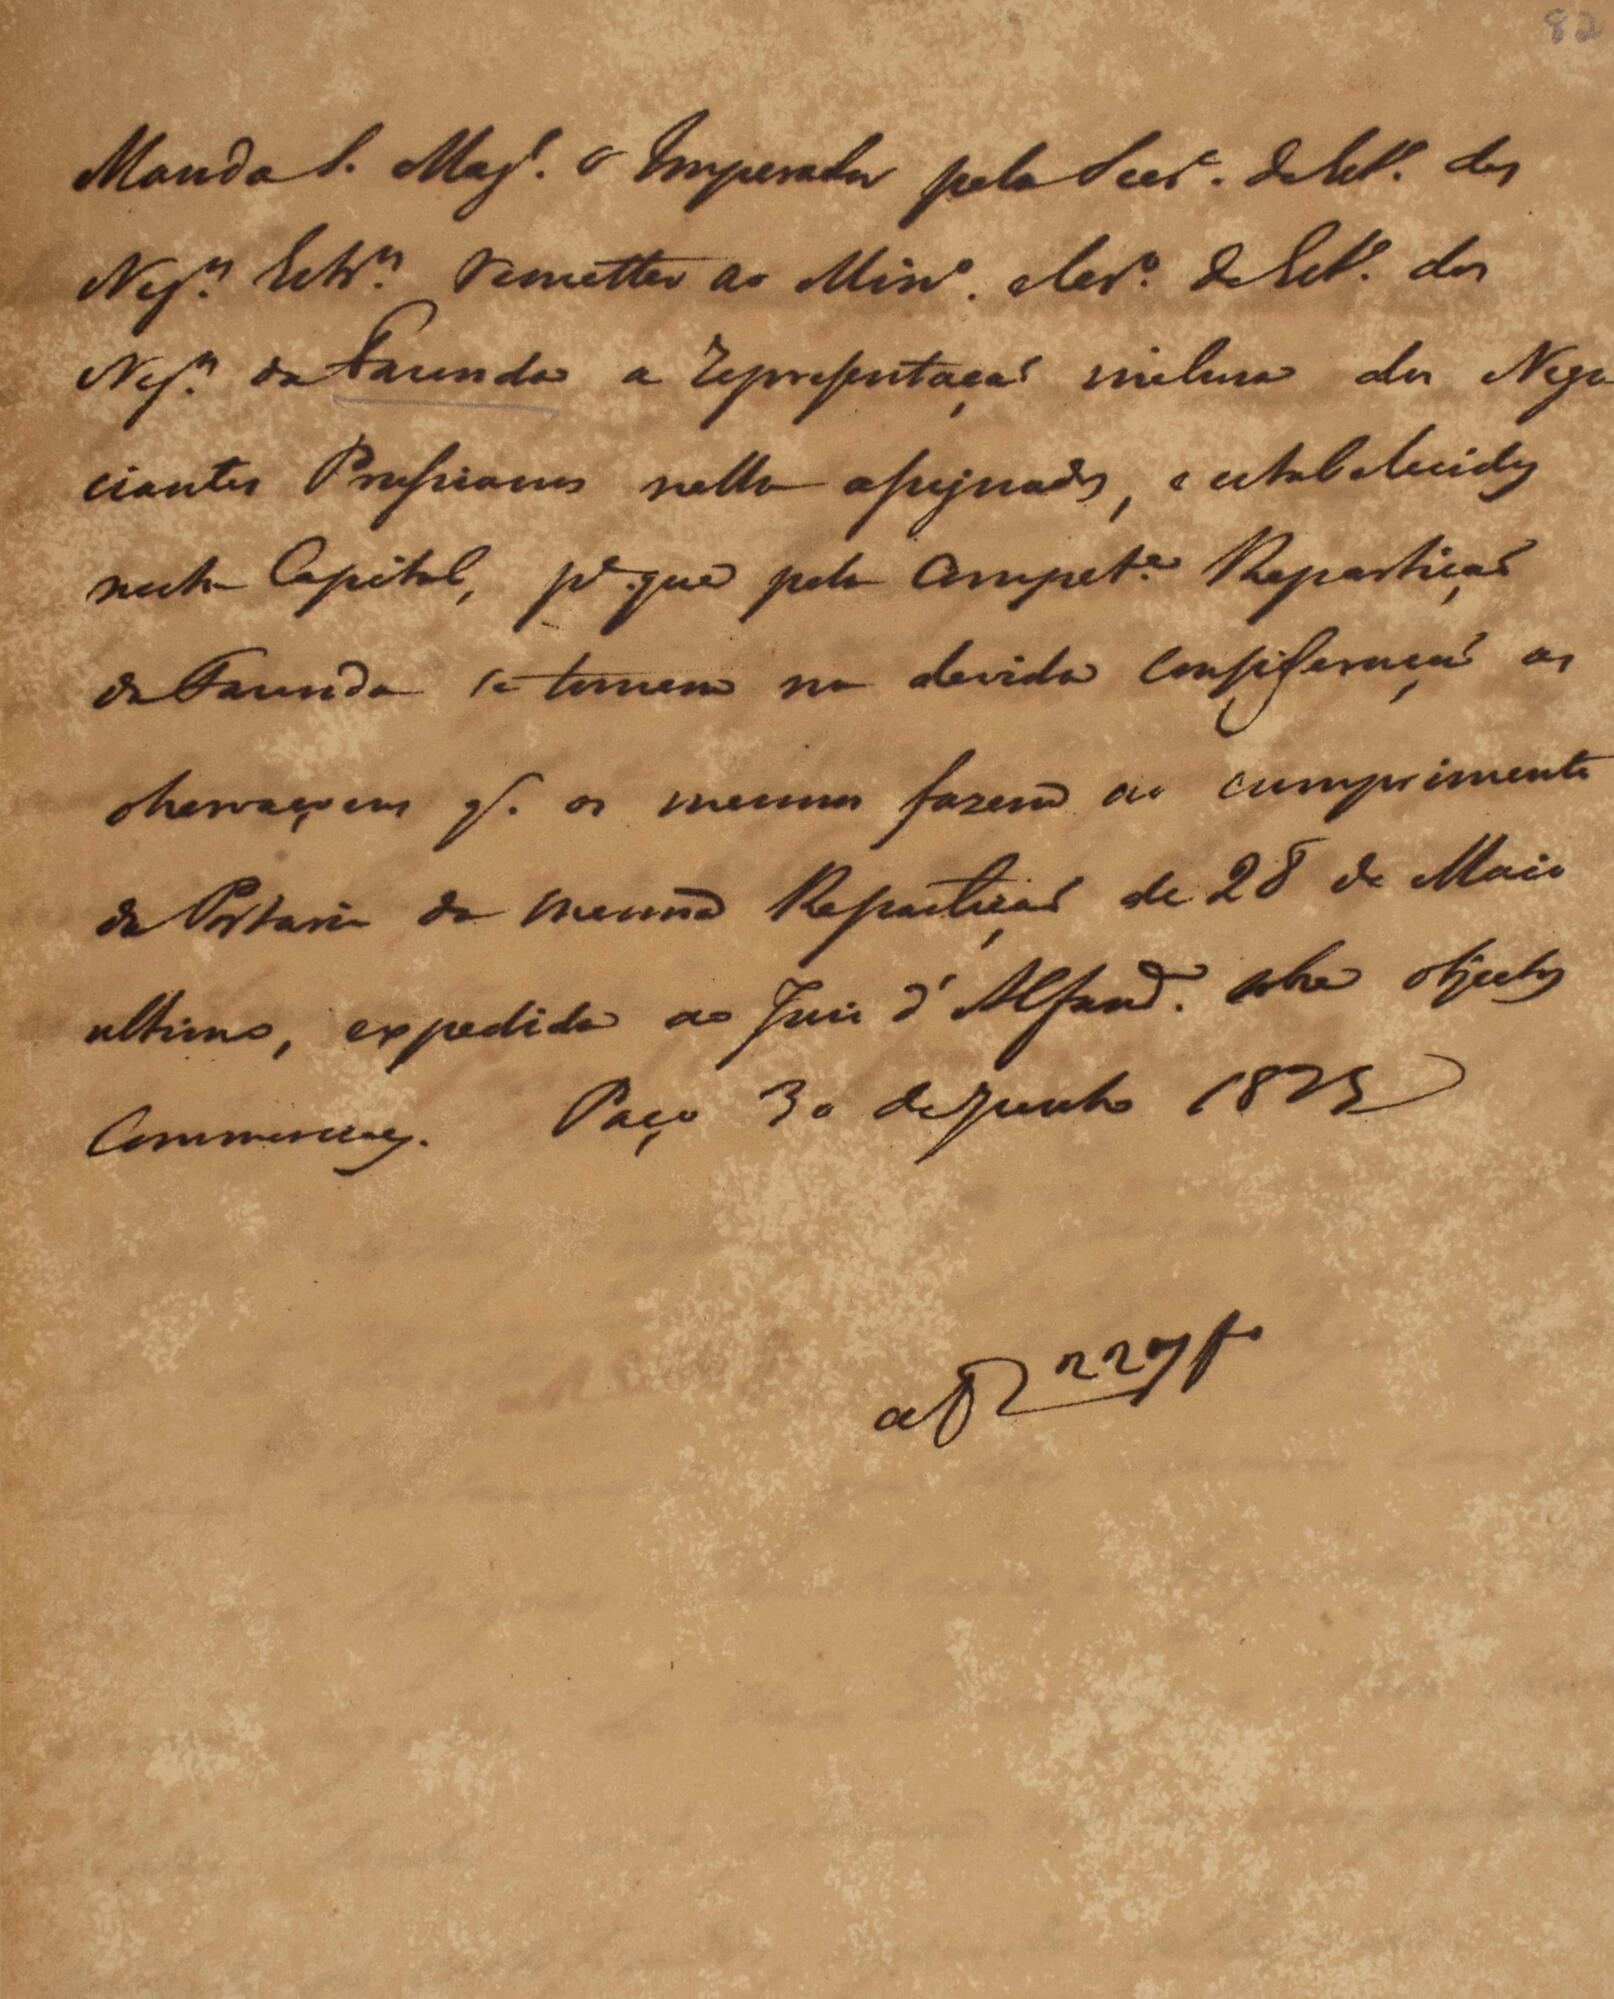 82
Manda S. Mag.e o Imperador pela Secr.a de Est.o dos
Neg.os Estr.os remetter ao Min.o e Secr.o de Est.o dos
Neg.os da Fazenda a representação inclusa dos Nego
ciantes Prussianos nella assignados, e estabelecidos
nesta Capital, p.a que pela Compet.e Repartição
da Fazenda se tomem na devida consideração as
observaçoens q. os mesmos fazem ao cumprimento
da Portaria da mesma Repartição de 28 de Maio
ultimo, expedida ao Juiz d'Alfand.a sobre objectos
Commerciaes. Paço 30 de Junho 1825